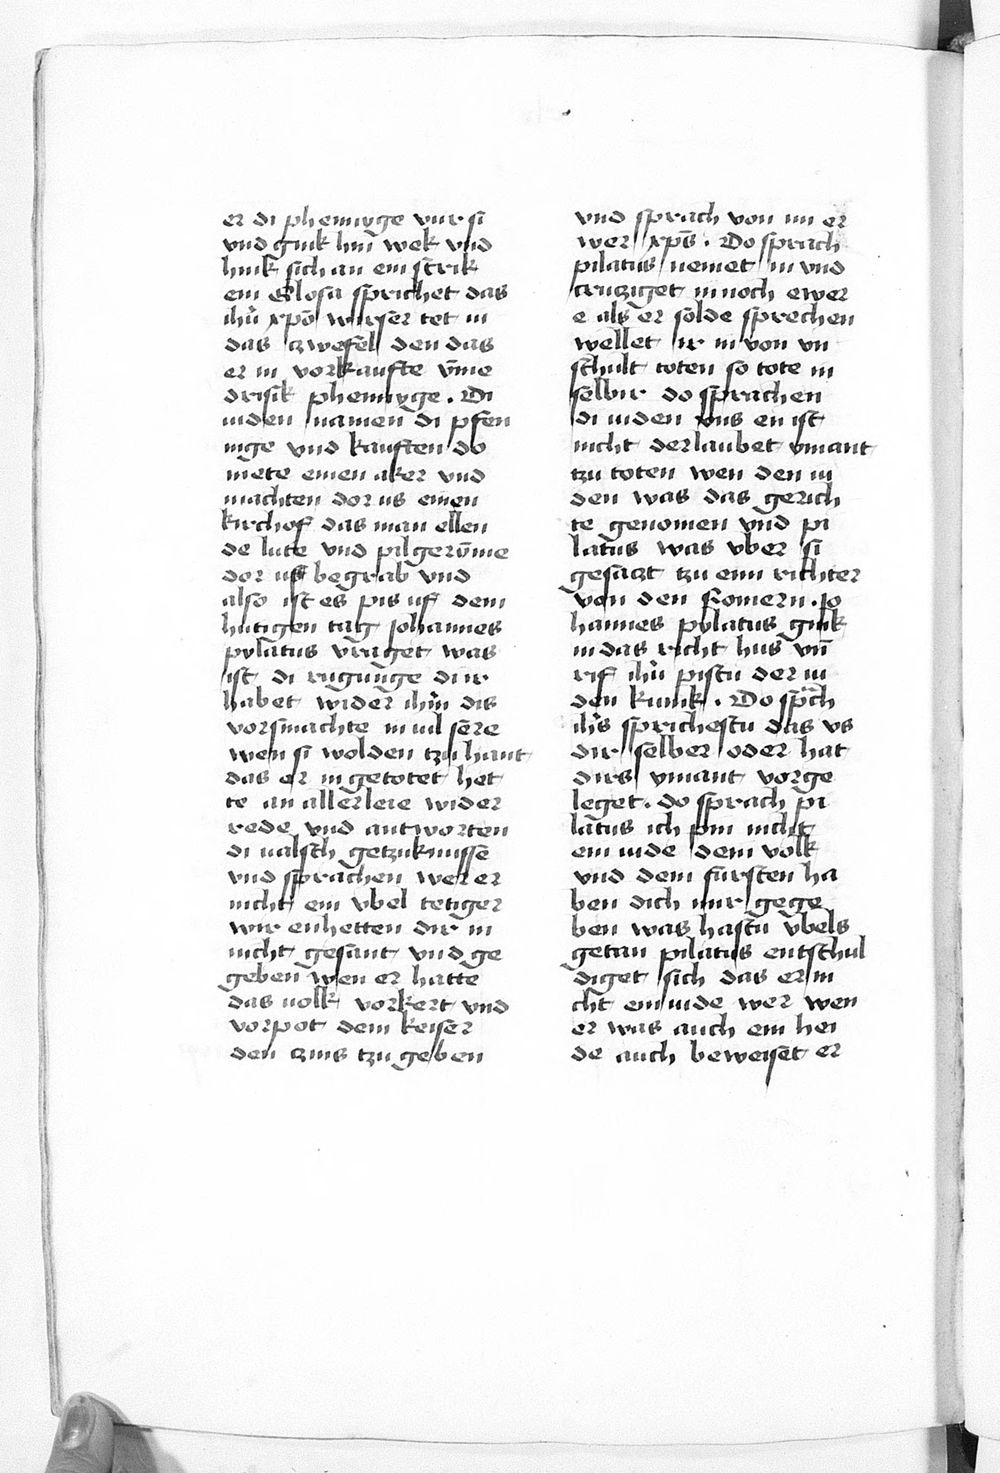 er di phennyge vur si
vnd gink hin wek vnd
hink sich an ein strik
ein Glosa sprichet das
ihū xpō wirser tet in
das czwefel den das
er in vorkaufte v̄me
drisik phennyge . Di
iuden namen di pfen
nige vnd kauften do
mete einen aker vnd
machten dor us einen
kirchof das man ellen
de lute vnd pilgerv̄me
dor uff begrab vnd
also ist es pis uf dem
hutigen tag Johannes
pylatus vraget was
ist di rugunge di ir
habet wider ihūm dis
vorsmachte in uil sere
wen si wolden tzu hant
das er in getotet het
te an allerleie wider
rede vnd antworten
di ualsch getzuknusse
vnd sprachen wer er
nicht ein vbel tetiger
wir enhetten dir in
nicht gesant vnd ge
geben wen er hatte
das uolk vorkert vnd
vorpot dem keiser
den czins tzu geben
vnd sprach von im er
wer xpūs . Do sprach
pilatus nemet in vnd
cruziget in noch ewer
e als er solde sprechen
wellet ir in von vn
schult toten so tote in
selbir do sprachen
di iuden vns en ist
nicht derlaubet ymant
tzu toten wen den iu
den was das gerich
te genomen vnd pi
latus was vber si
gesaczt tzu eim richter
von den Romern . Jo
hannes pylatus gink
in das richt hus vn̄
rif ihū pistu der iu
den kunik . Do sprach
ihūs sprichestu das vs
dir selber oder hat
dirs ymant vorge
leget . do sprach pi
latus ich pin nicht
ein iude dein volk
vnd dein fursten ha
ben dich mir gege
ben was hastu vbels
getan pilatus entschul
diget sich das er ni
cht ein iude wer wen
er was auch ein hei
de auch beweiset er